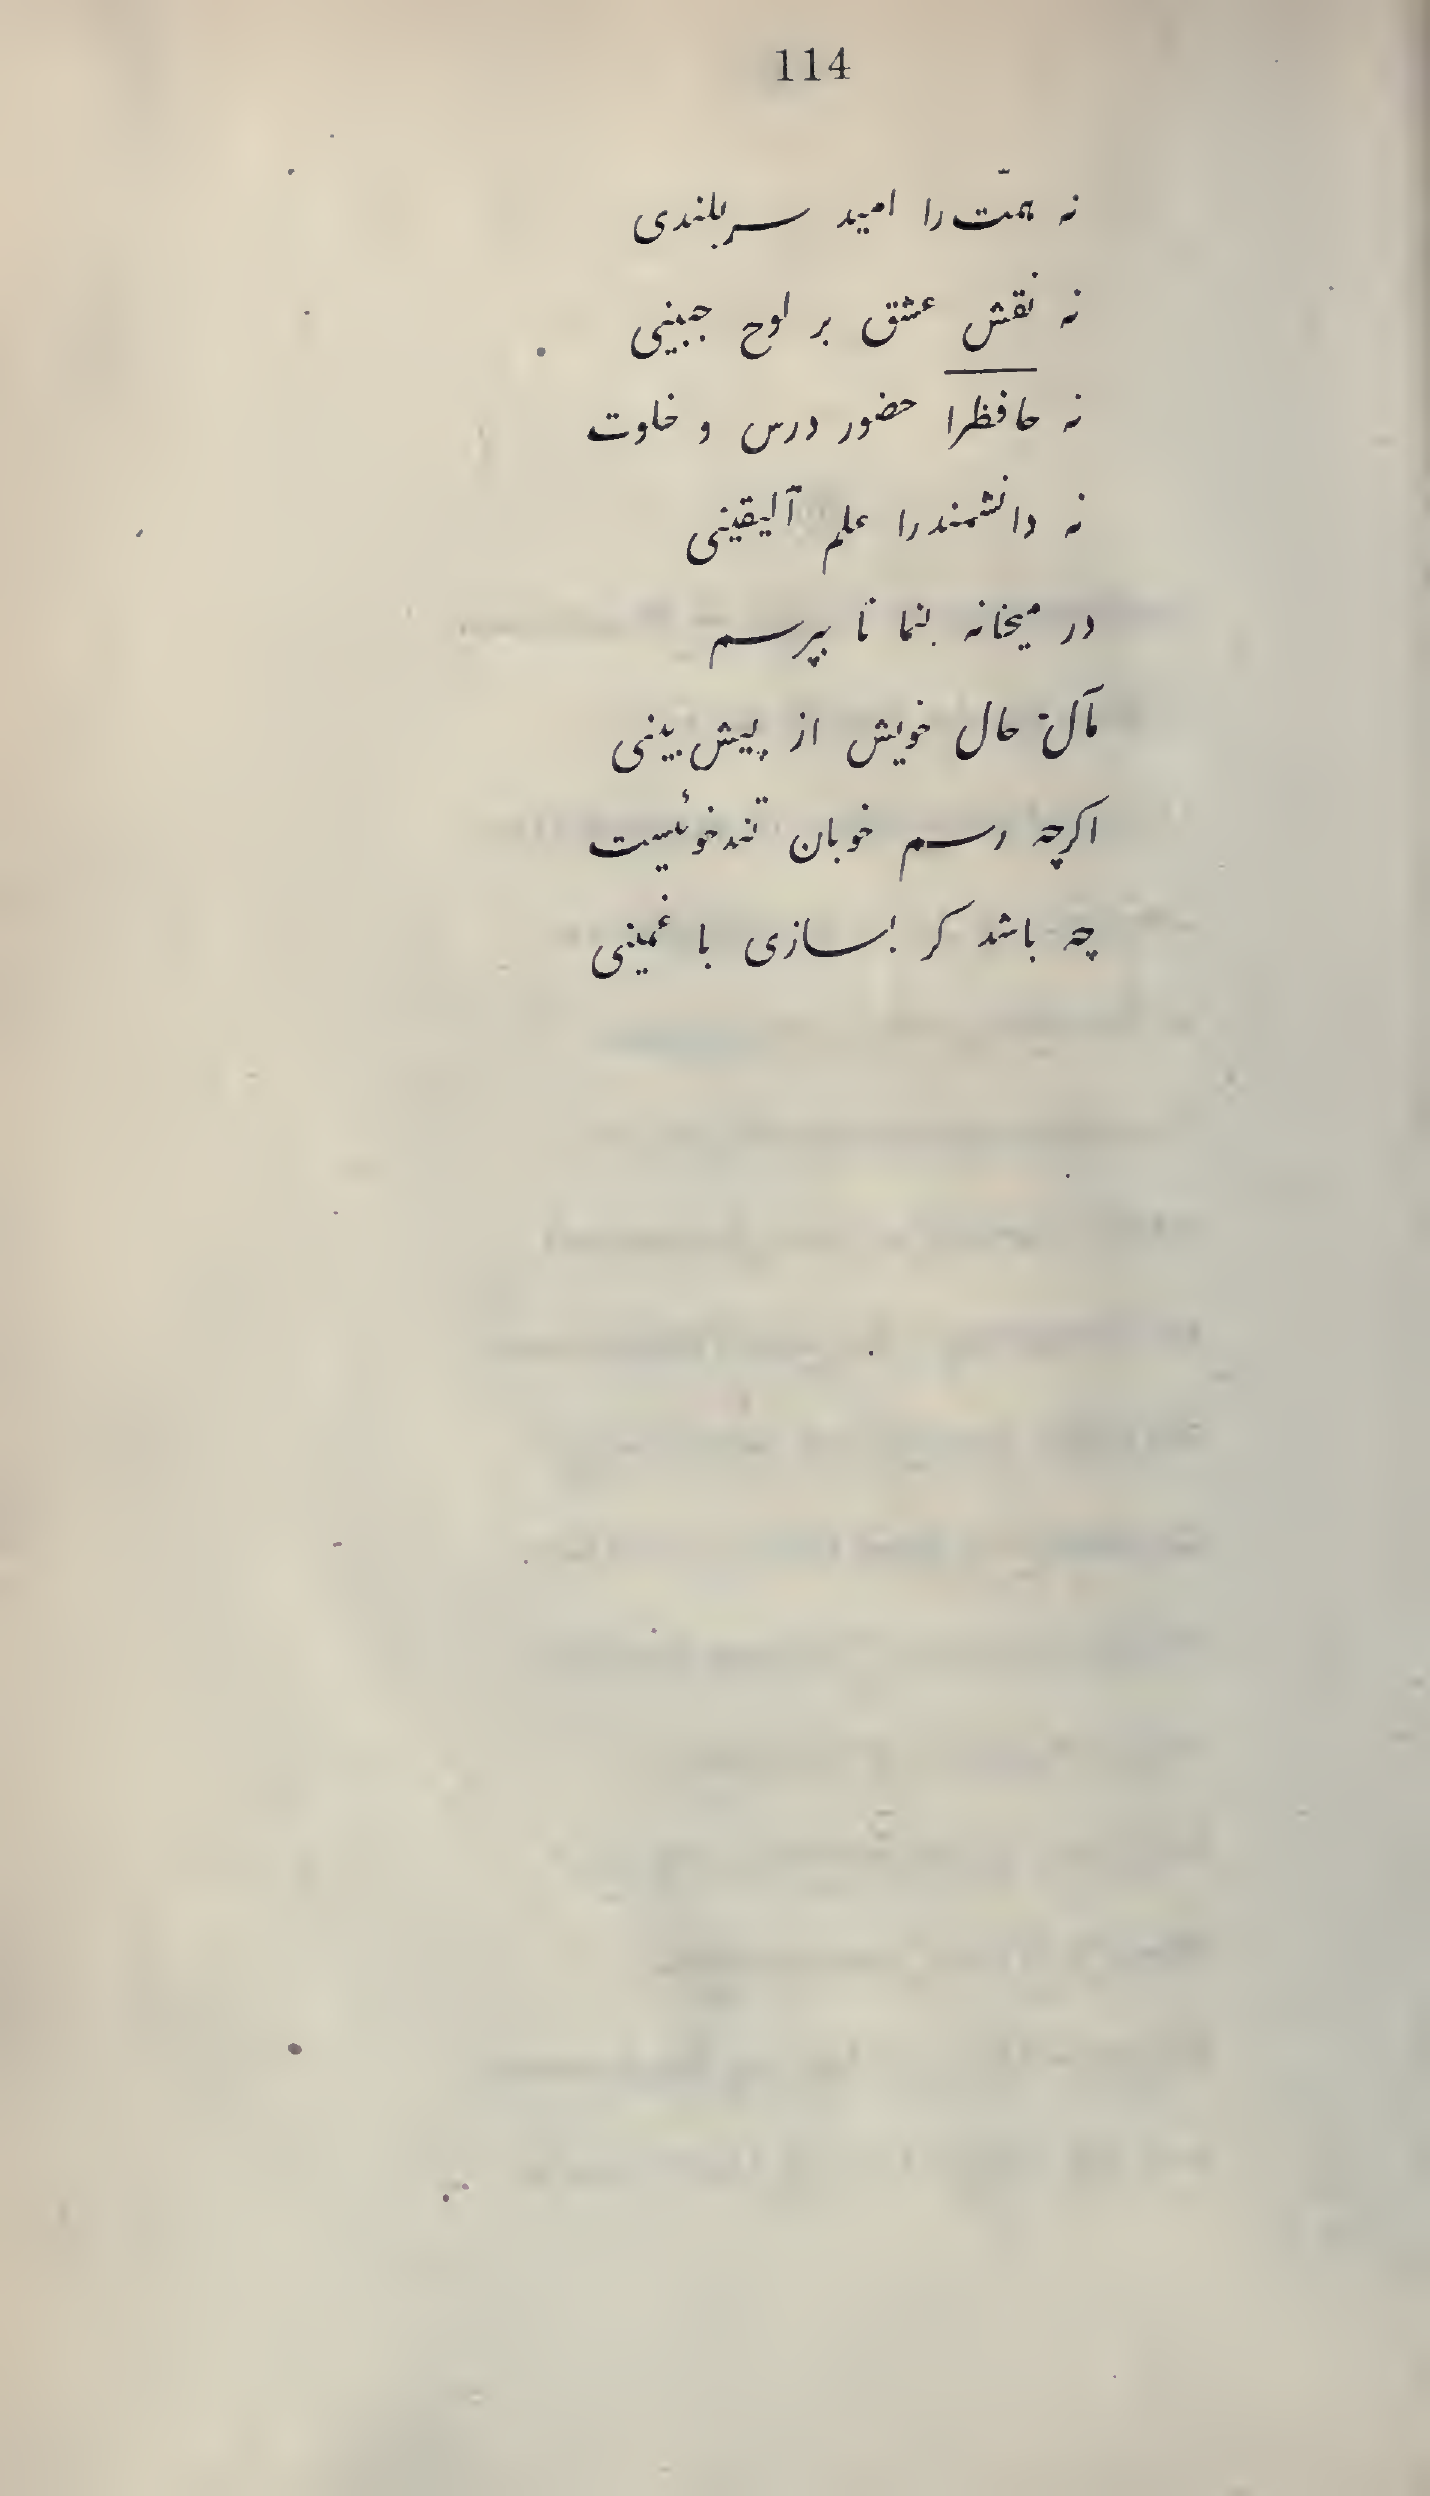 114
نه همّت را امید سربلندی
نه نقش عشق بر لوح جبینی
نه حافظرا حضور درس و خلوت
نه دانشمندرا علم آلیقینی
در میخانه بنما تا بپرسم
مآل حال خویش از پیش بینی
اکرچه رسم خوبان تندخوئیست
چه باشد کر بسازی با غمینی